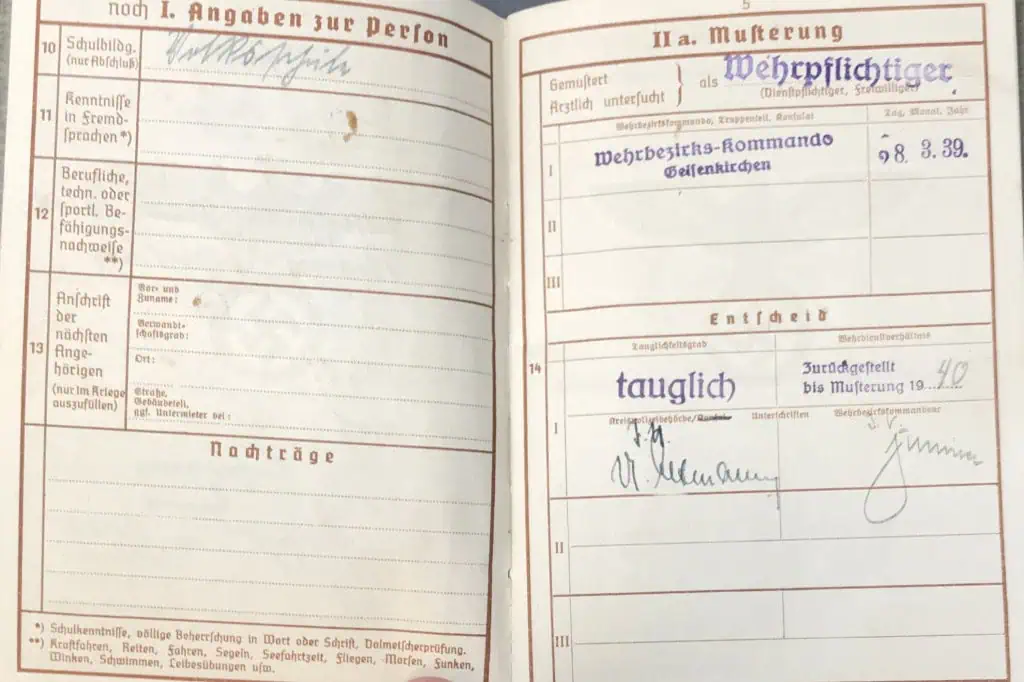 noch I. Angaben zur Person
10 Schulbildg.
(nur Abschluß)
Volksschule
11 Kenntnisse
in Fremd-
sprachen *)
12 Berufliche,
techn. oder
sportl. Be-
fähigungs-
nachweise
**)
13 Anschrift
der
nächsten
Ange-
hörigen
(nur im Kriege
auszufüllen)
Vor- und
Zuname:
Verwandt-
schaftsgrad:
Ort:
Straße,
Gebäudeteil,
ggf. Untermieter bei:
Nachträge
*) Schulkenntnisse, völlige Beherrschung in Wort oder Schrift, Dolmetscherprüfung.
**) Kraftfahren, Reiten, Fahren, Segeln, Seefahrtzeit, Fliegen, Morsen, Funken,
Winken, Schwimmen, Leibesübungen usw.
5
II a. Musterung
Gemustert
Ärztlich untersucht
als Wehrpflichtiger
(Dienstpflichtiger, Freiwilliger)
Wehrbezirkskommando, Truppenteil, Konsulat
Tag, Monat, Jahr
I
Wehrbezirks-Kommando
Gelsenkirchen
28. 3. 39.
II
III
Entscheid
14
Tauglichkeitsgrad
Wehrdienstverhältnis
tauglich
Zurückgestellt
bis Musterung 1940
I
Kreispolizeibehörde/Konsul
Unterschriften
Wehrbezirkskommandeur
II
III